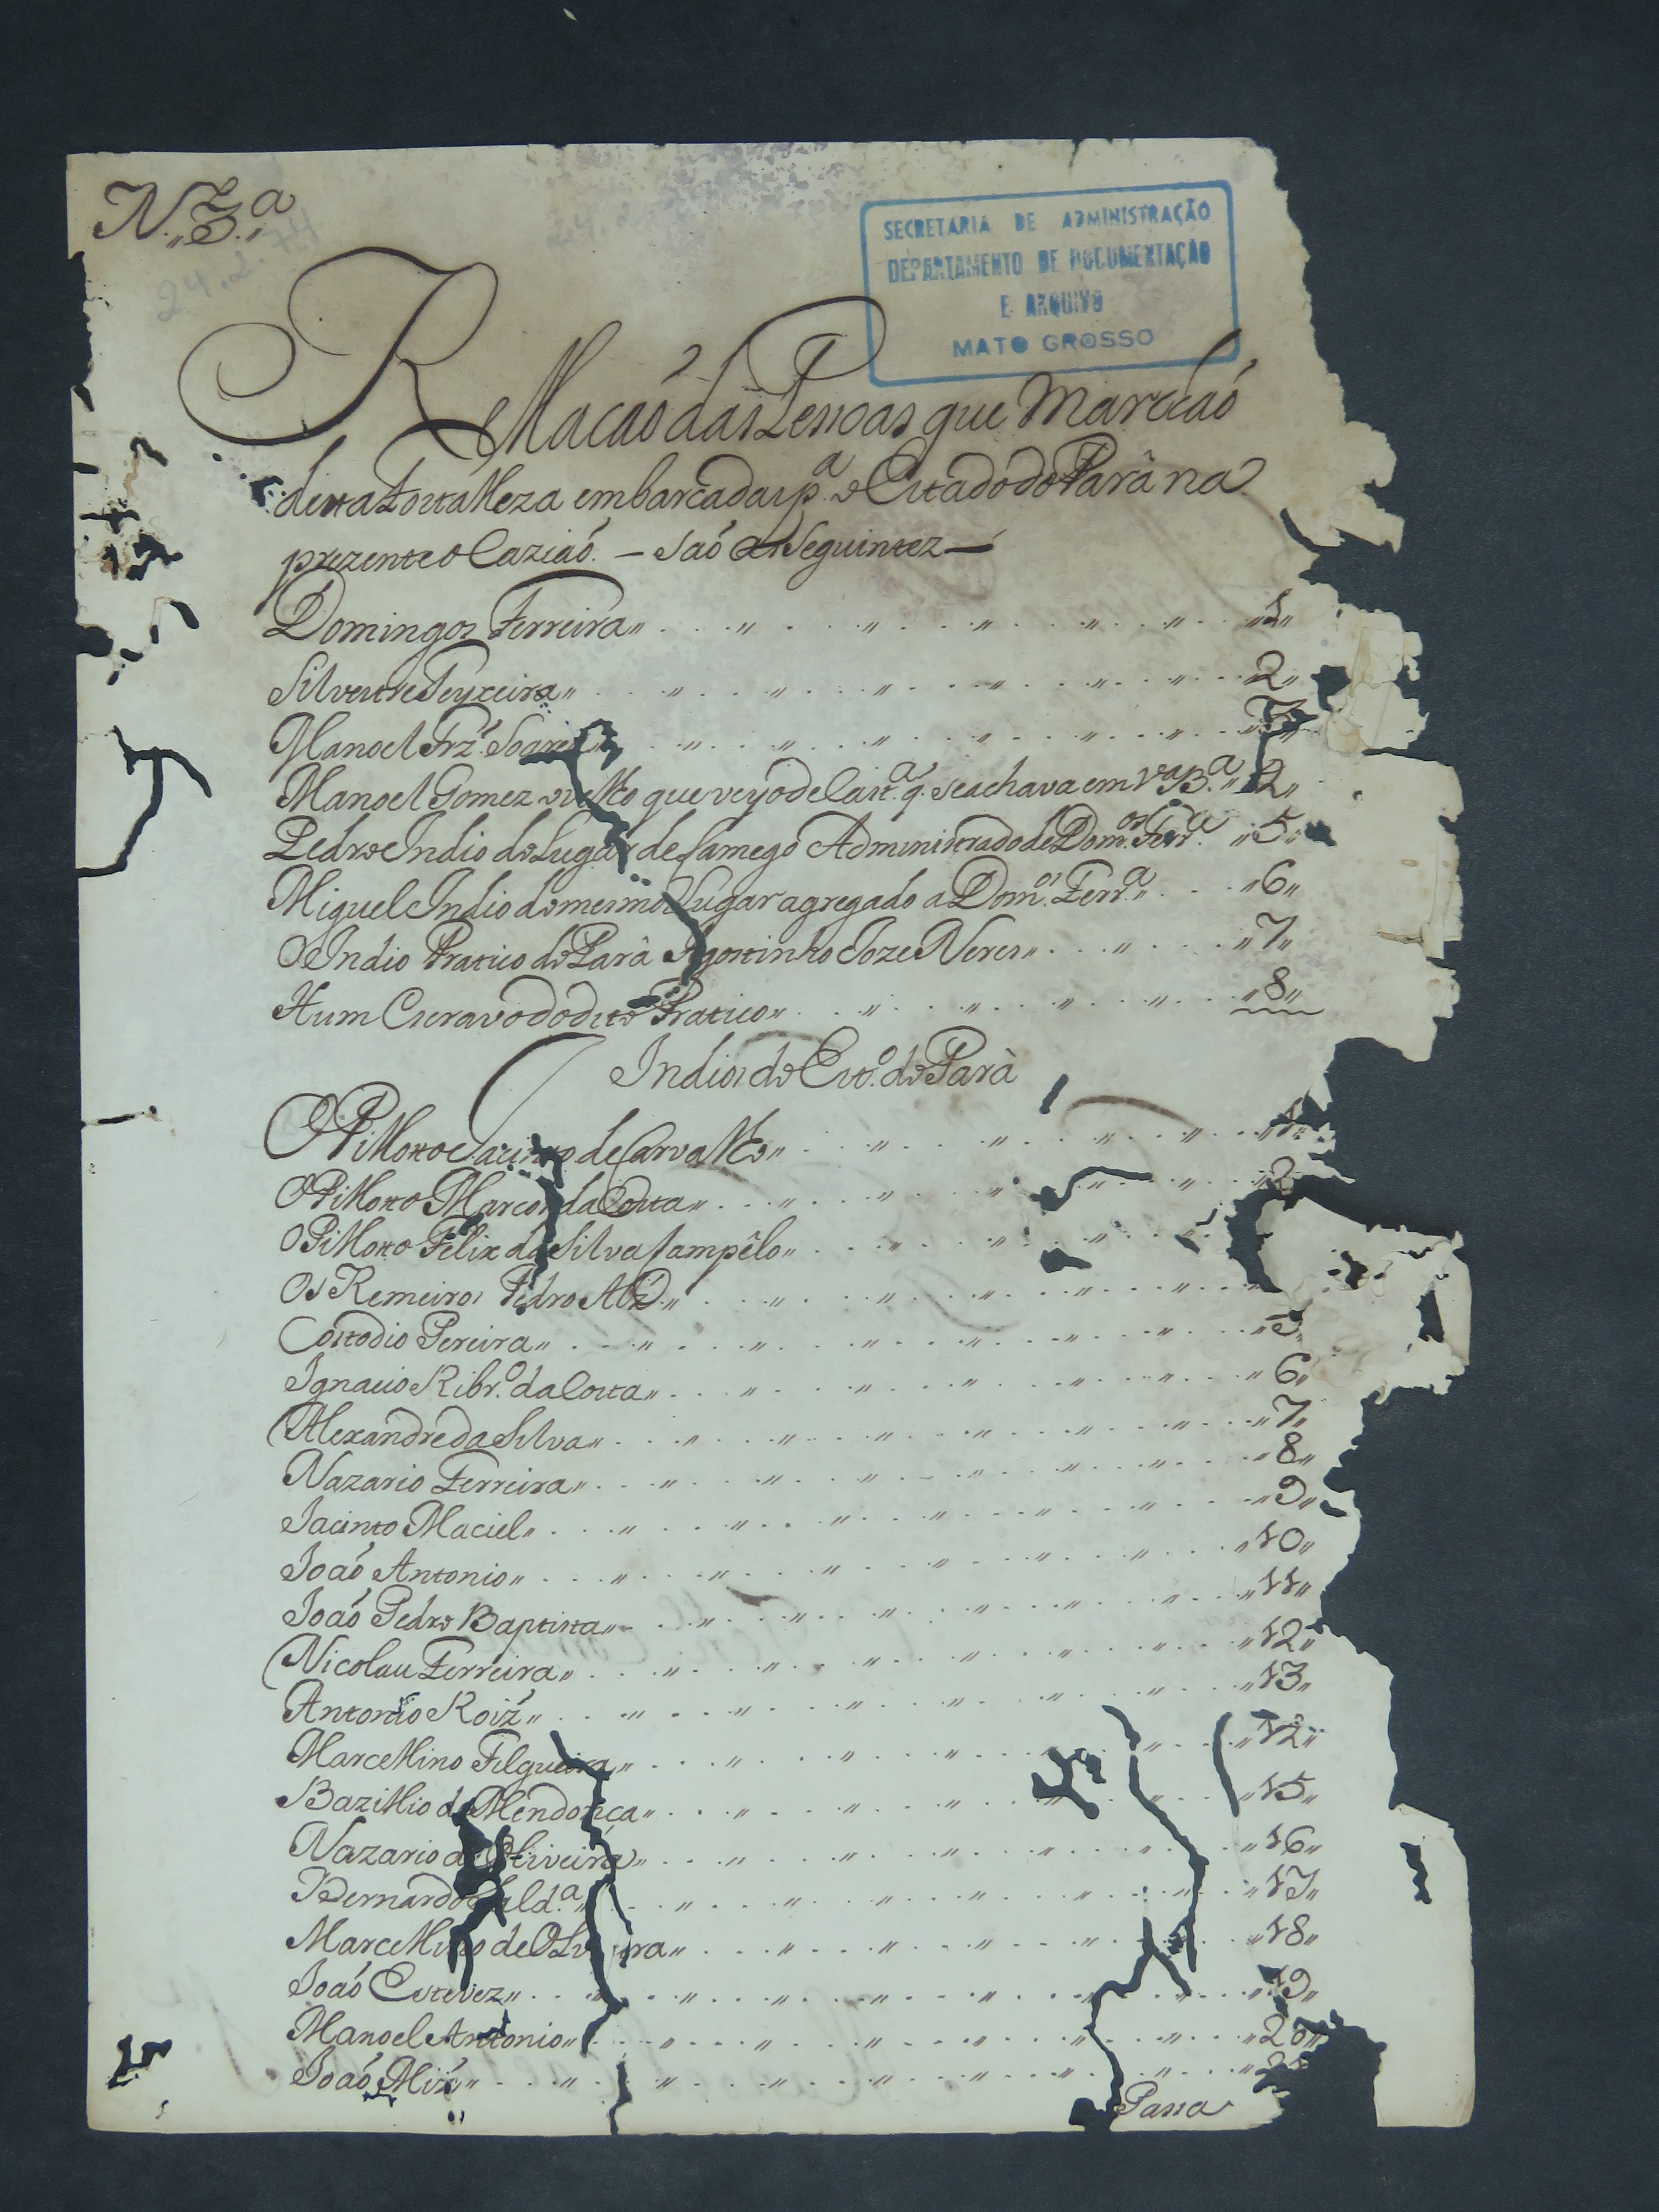 N. 3.ª
24.2.74
SECRETARIA DE ADMINISTRAÇÃO
DEPARTAMENTO DE DOCUMENTAÇÃO
E ARQUIVO
MATO GROSSO
Rellacaó das Pessoas que Marchaó
desta Fortalleza embarcadas p.ª o Estado do Parâ na
prezente o Caziaó. — Saó as Seguintez —
Domingos Ferreira,, 1,,
Silvestre Teyxeira,, 2,,
Manoel Frz' Soares 3
Manoel Gomez que veyo de q' se achava em V.ª B.ª,, 2,,
Pedro Indio do Lugar de Lamego Administrado de Dom.os Ferr.ª ,,5,,
Miguel Indio do mesmo Lugar agregado a Dom.os Ferr.ª,, ,,6,,
O Indio Pratico do Parâ Agostinho Joze Neres,, ,,7,,
Hum Escravo do dito Pratico,, ,,8,,
Indios do Est.o do Parà
O Pilloto Jacinto de Carvalho,, 1
O Pilloto Marcos da Costa,, 2
O Pilloto Felix da Silva Campêlo,,
Os Remeiros Pedro Alz',,
Costodio Pereira,, 5,,
Ignacio Ribr.o da Costa,, ,,6,,
Alexandre da Silva,, ,,7,,
Nazario Ferreira,, ,,8,,
Jacinto Maciel,, ,,9,,
Joaó Antonio,, ,,10,,
Joaó Pedro Baptista,, ,,11,,
Nicolau Ferreira,, ,,12,,
Antonio Roiz',, ,,13,,
Marcellino Filgueira,, ,,12,,
Bazillio de Mendonça,, ,,15,,
Nazario de Oliveira,, ,,16,,
Bernardo Sald.ª,, ,,17,,
Marcellino de Oliveira,, ,,18,,
Joaó Estevez,, 19,,
Manoel Antonio,, ,,20,,
Joaó Alz',,
Passa